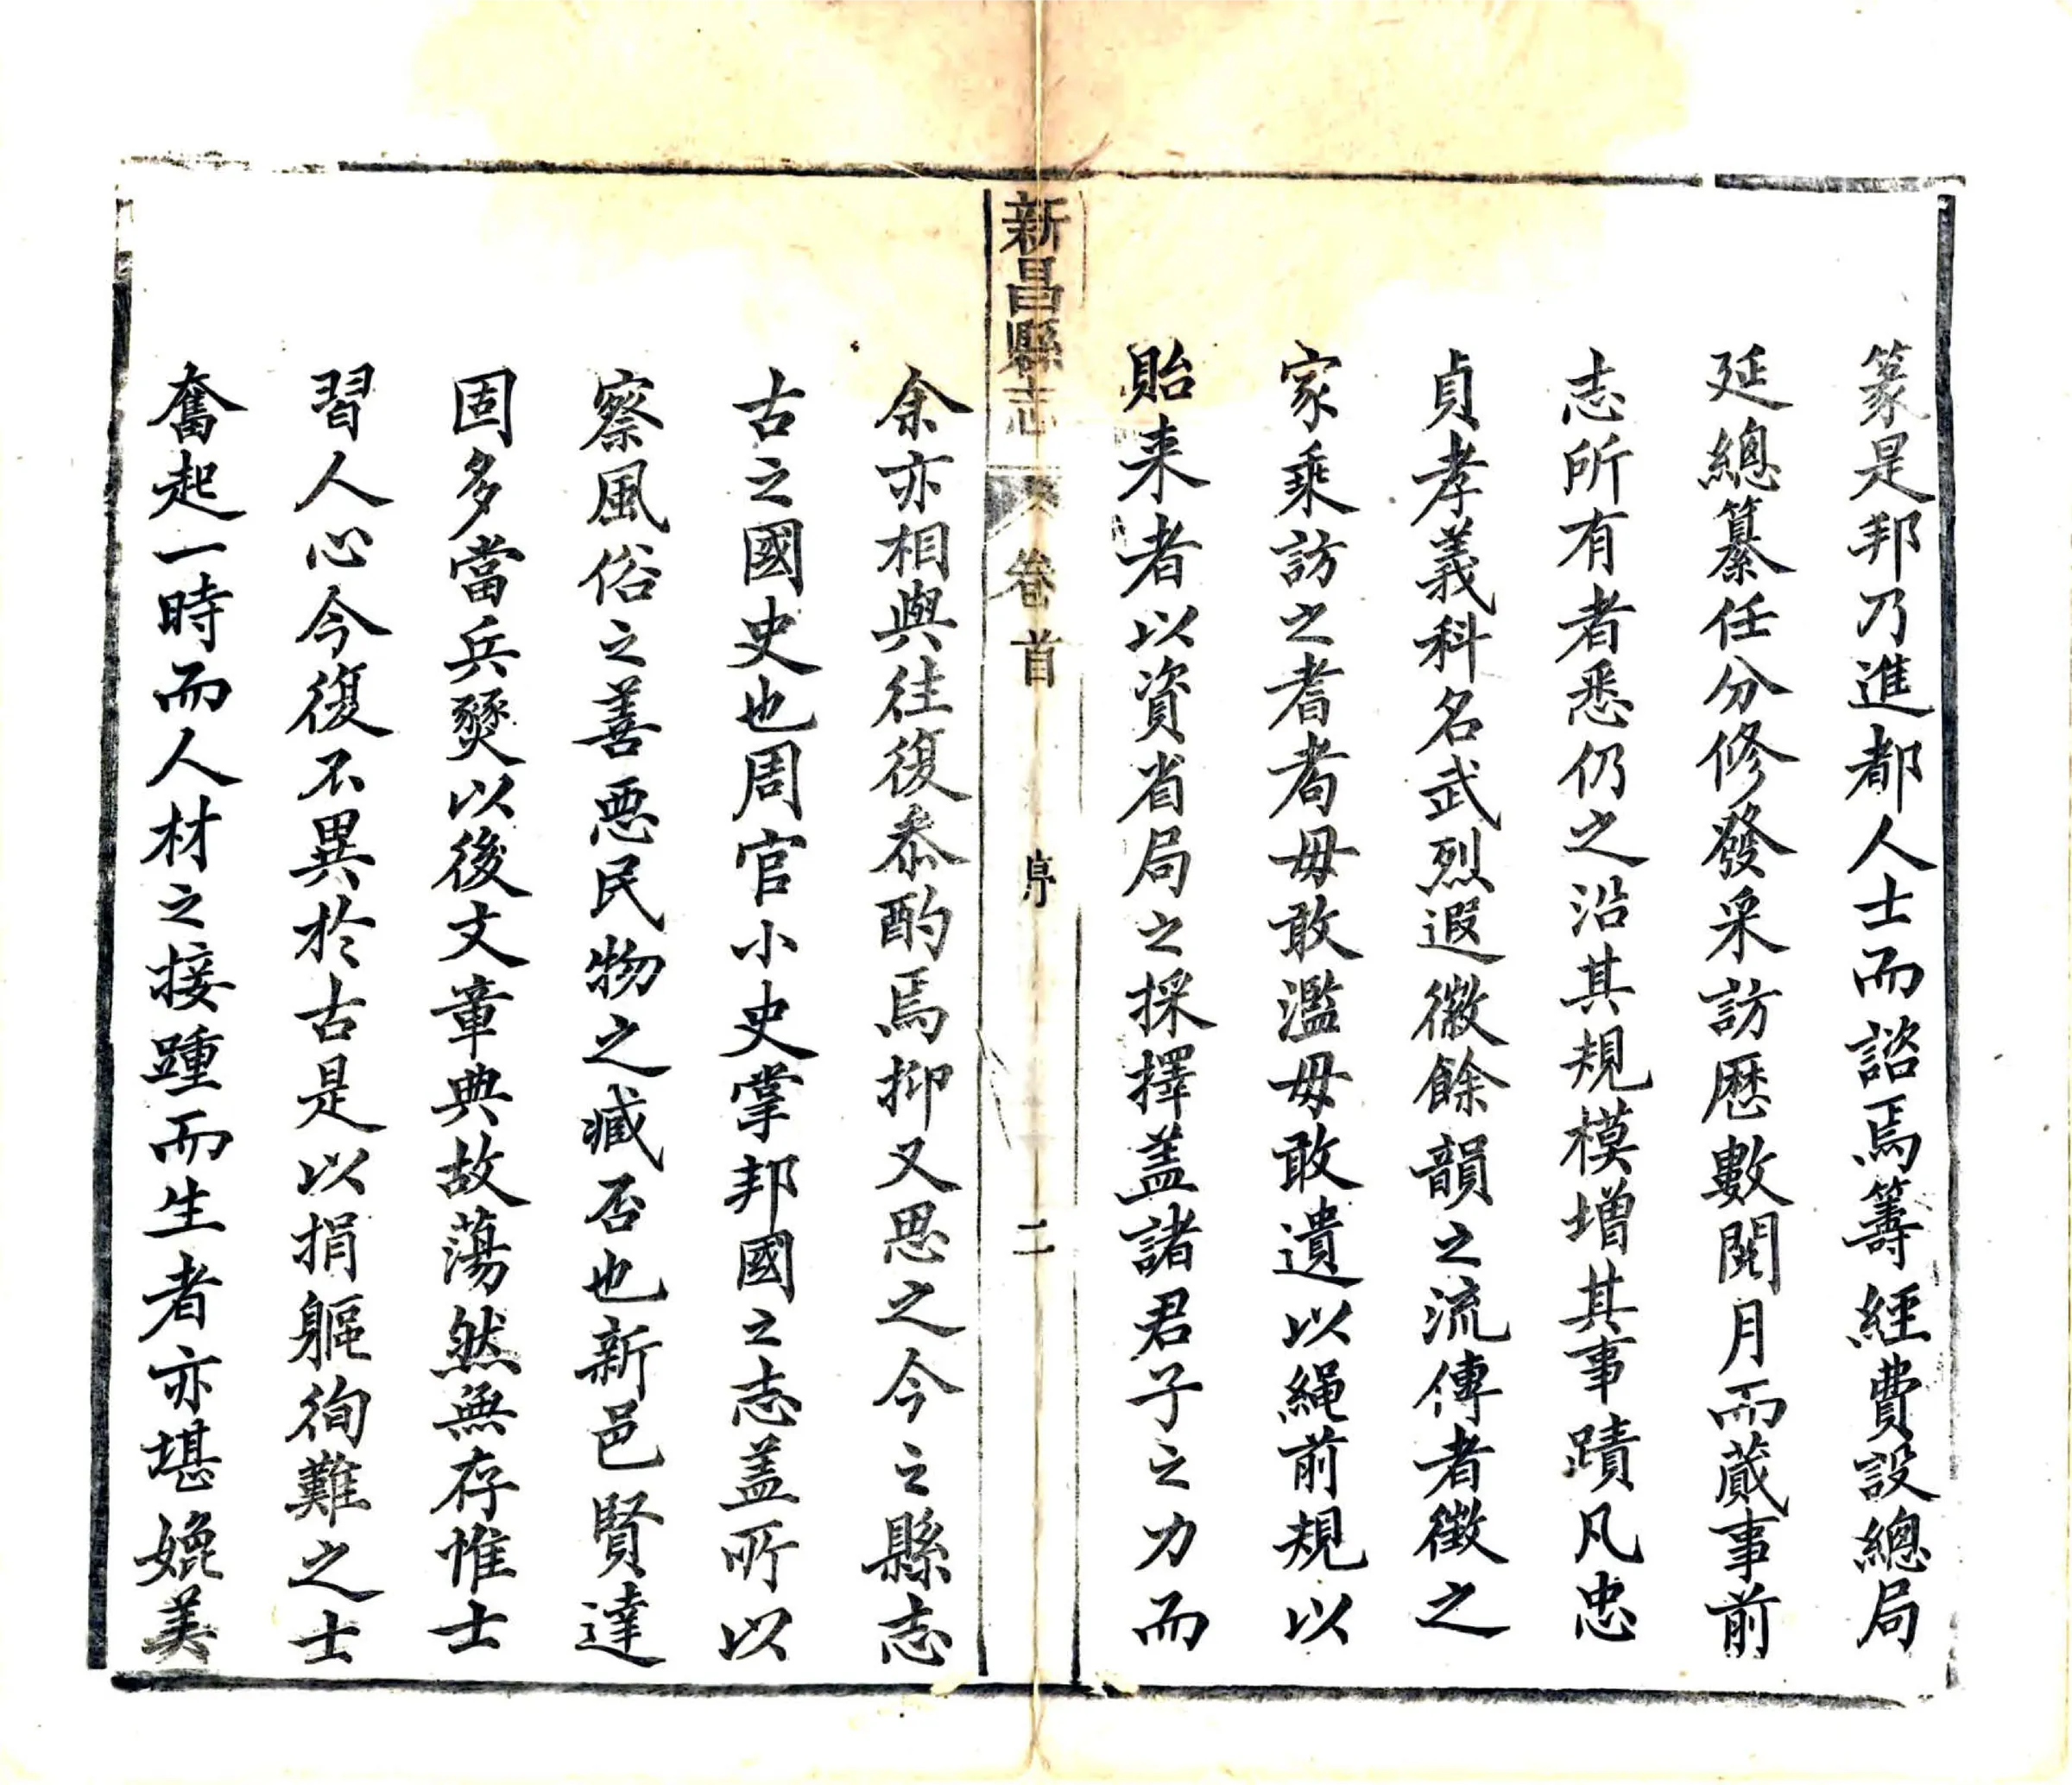 篆是邦乃進都人士而諮焉籌經費設總局
延總纂任分修發采訪歷數閱月而蕆事前
志所有者悉仍之沿其規模增其事蹟凡忠
貞孝義科名武烈遐徽餘韻之流傳者徵之
家乘訪之耆耇毋敢濫毋敢遺以繩前規以
貽来者以資省局之採擇盖諸君子之力而
新昌縣志
卷首
序
二
余亦相與往復叅酌焉抑又思之今之縣志
古之國史也周官小史掌邦國之志盖所以
察風俗之善惡民物之臧否也新邑賢達
固多當兵燹以後文章典故蕩然無存惟士
習人心今復不異於古是以捐軀徇難之士
奮起一時而人材之接踵而生者亦堪媲美